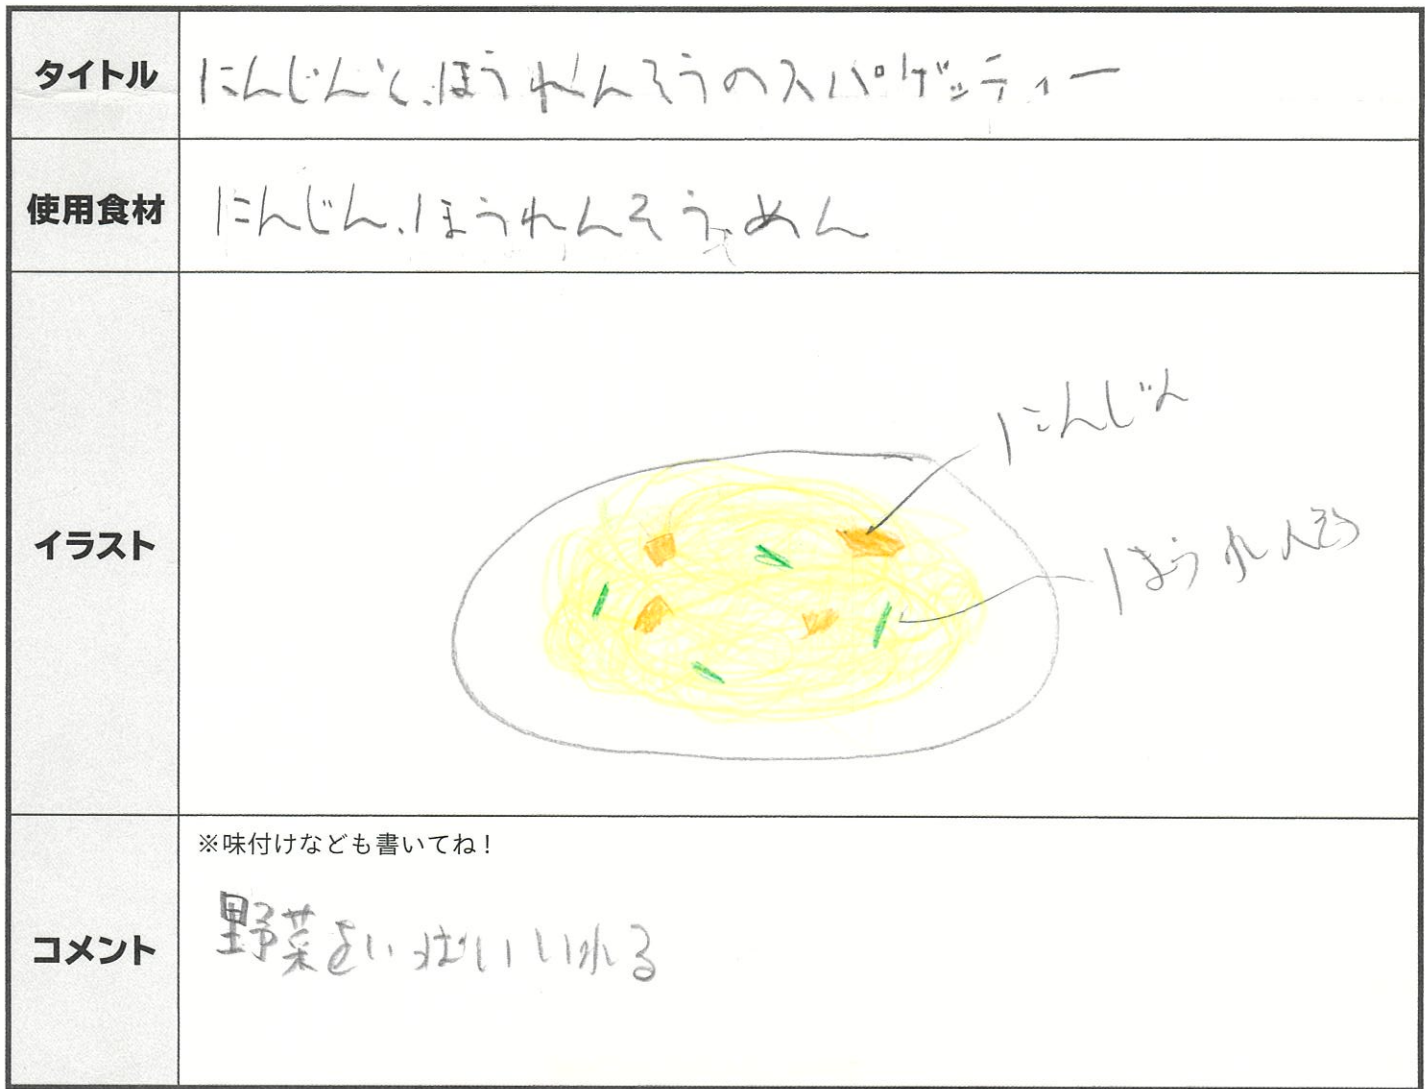 タイトル
にんじんと、ほうれんそうのスパゲッティー
使用食材
にんじん、ほうれんそう、めん
イラスト
にんじん
ほうれんそう
コメント
※味付けなども書いてね！
野菜をいっぱいいれる